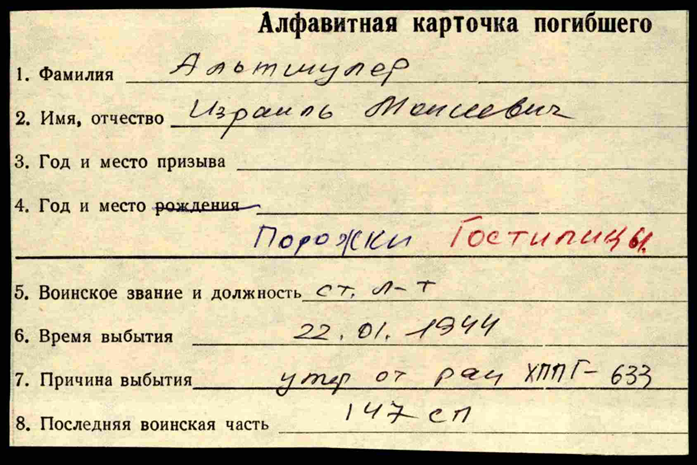 Алфавитная карточка погибшего
1. Фамилия Альтшулер
2. Имя, отчество Израиль Моисеевич
3. Год и место призыва
4. Год и место рождения
Порожки Гостилицы.
5. Воинское звание и должность ст. л-т
6. Время выбытия 22.01.1944
7. Причина выбытия умер от ран ХППГ-633
8. Последняя воинская часть 147 сп